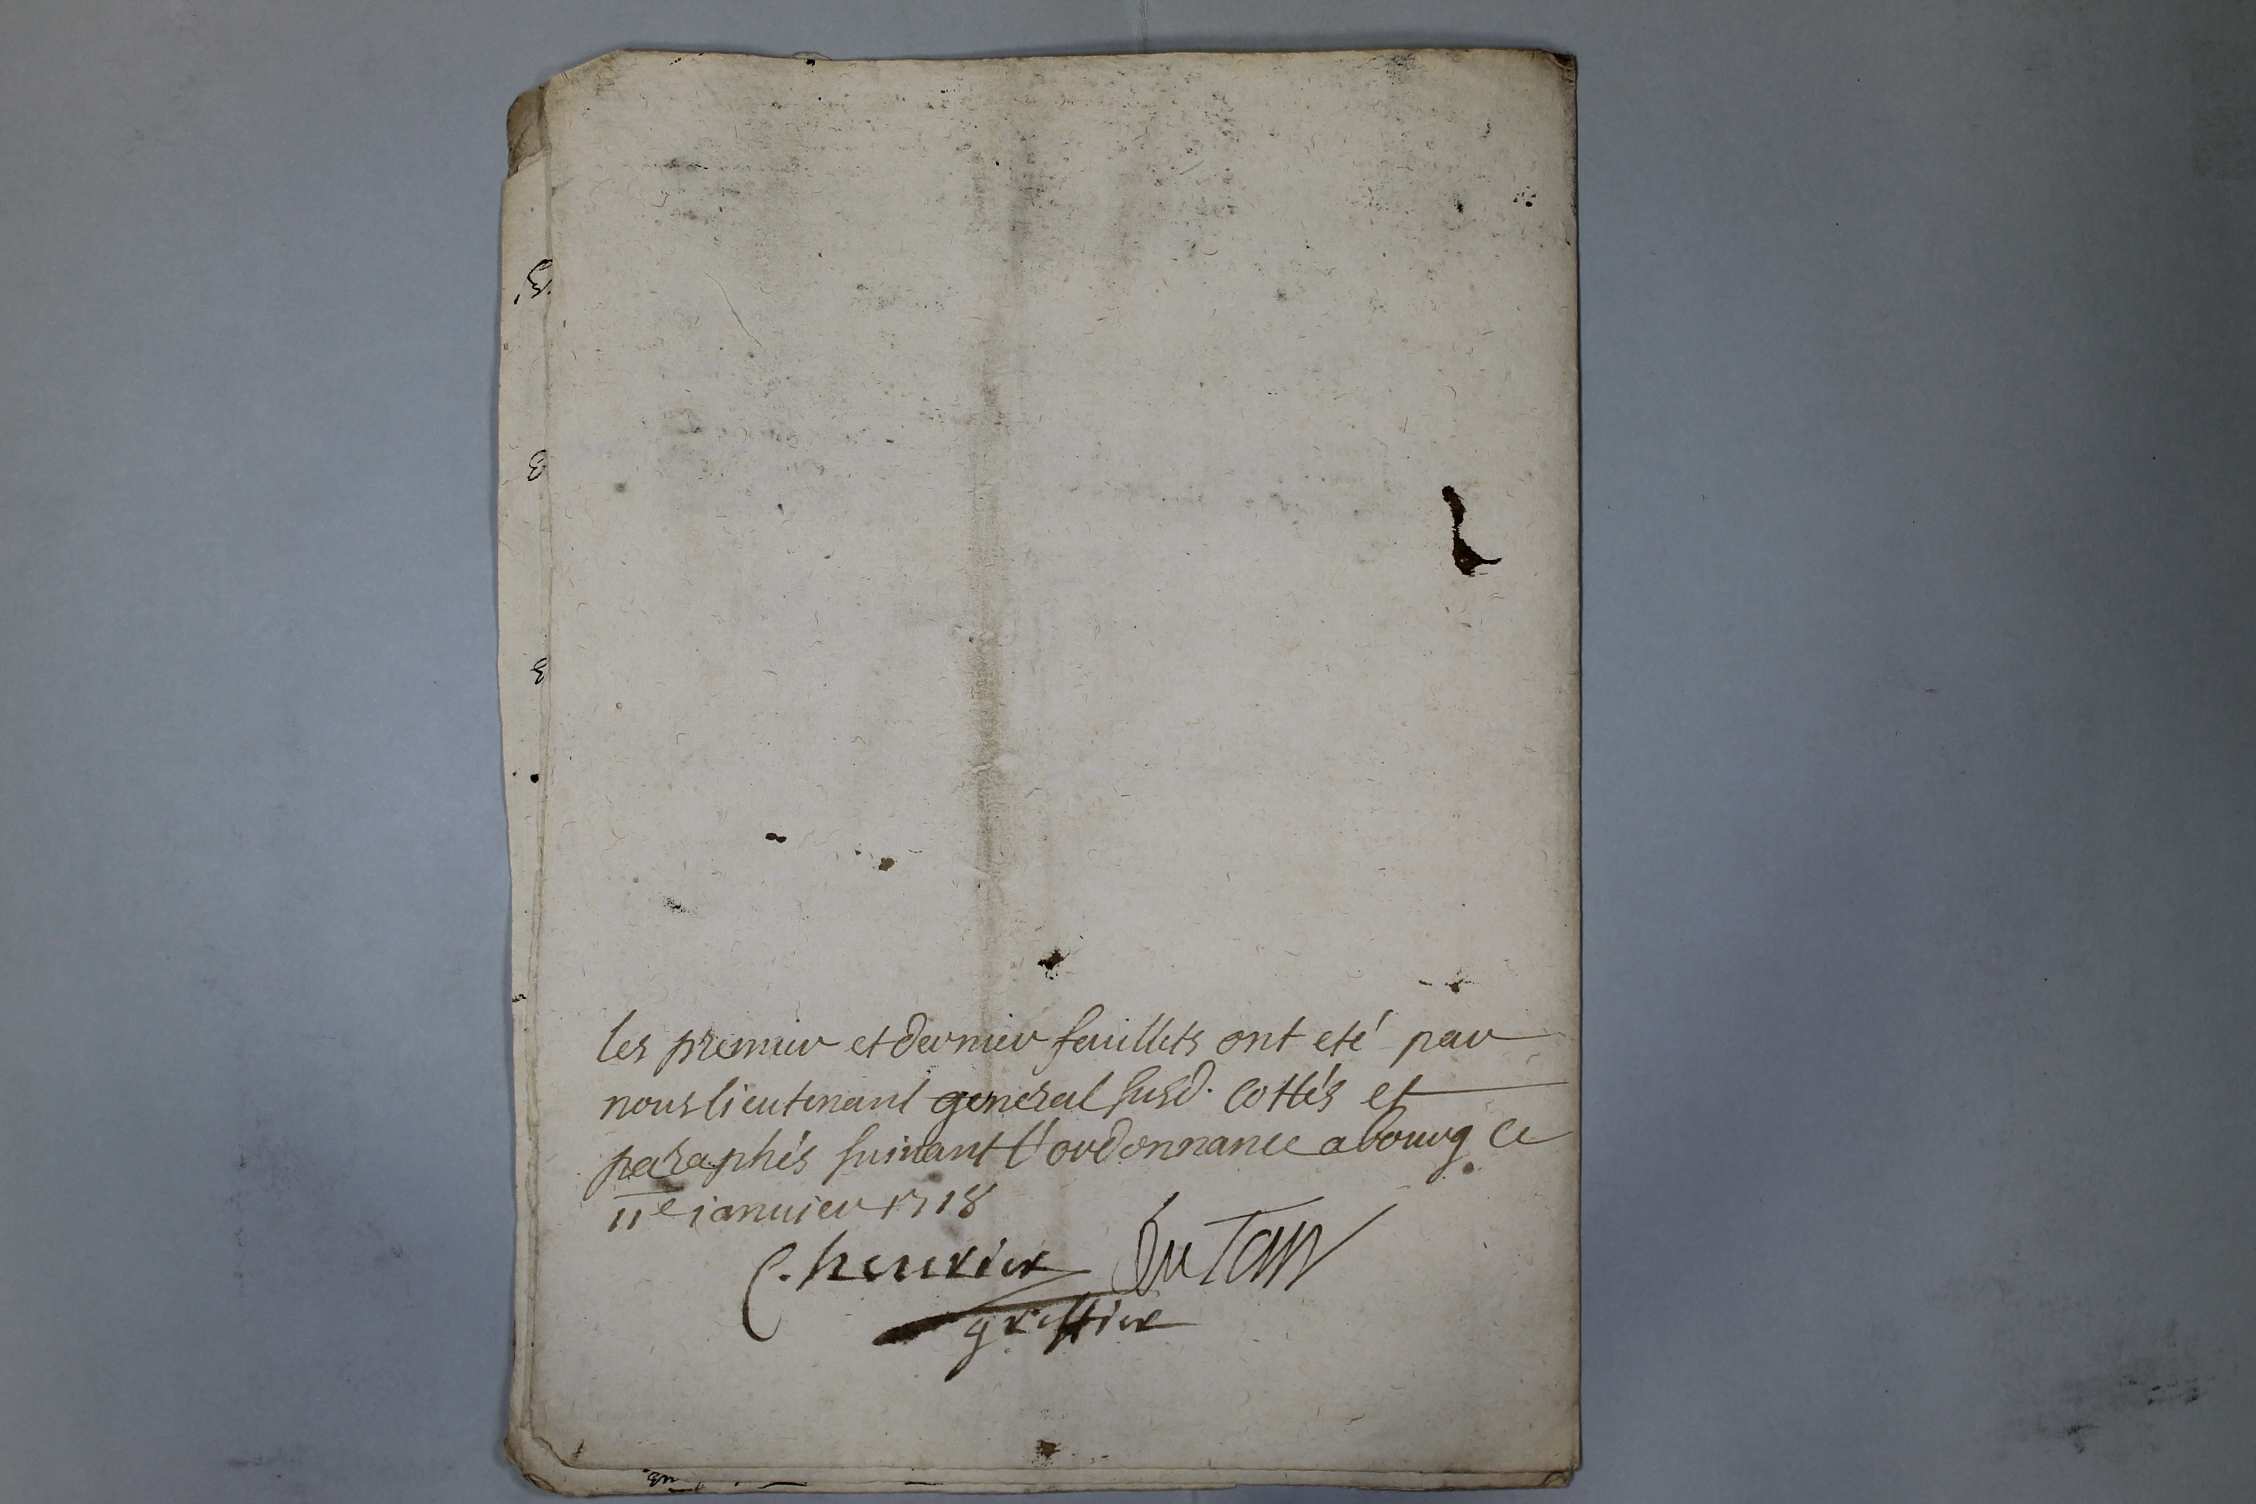 les premier et dernier feuillets ont eté par
nous lieutenant general susd. cottés et
paraphés suivant l'ordonnance a bourg ce
11e januier 1718
Cheurier
greffier